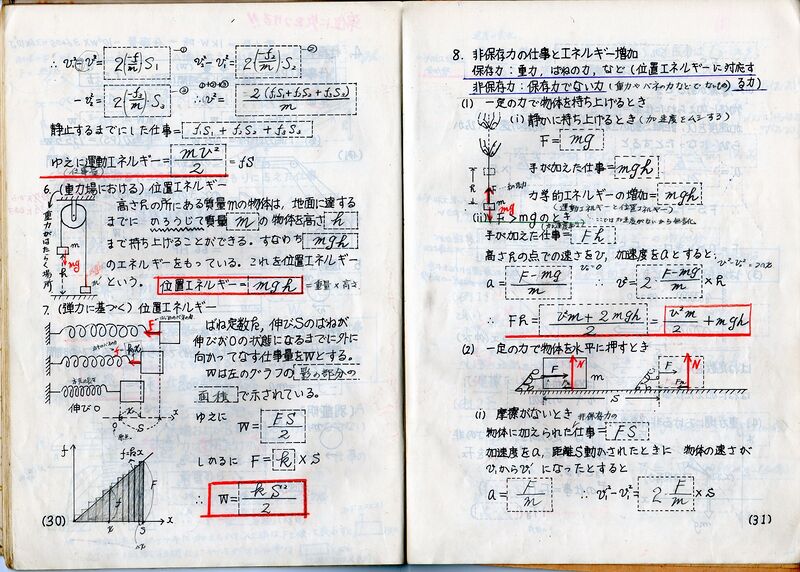 ∴ v²-v₁² = 2(-f₁/m)S₁ ―① v₁²-v₂² = 2(-f₂/m)S₂ ―②
-v₂² = 2(-f₃/m)S₃ ①+②+③ ∴v² = 2(f₁S₁+f₂S₂+f₃S₃)/m
静止するまでにした仕事 = f₁S₁ + f₂S₂ + f₃S₃
ゆえに運動エネルギー = mv²/2 = fS
(仕事量)
6. (重力場における) 位置エネルギー
高さhの所にある質量mの物体は、地面に達する
までに のろうじて質量 m の物体を高さ h
まで持ち上げることができる。すなわち mgh
のエネルギーをもっている。これを位置エネルギー
という。 位置エネルギー = mgh = 重量×高さ
重力がはたらく場所
N
mg
h
7. (弾力に基づく) 位置エネルギー
ばね定数k, 伸びSのばねが
伸びが0の状態になるまでに外に
向かってなす仕事量をWとする。
Wは左のグラフの 影の部分の
面積 で示されている。
F
伸び0
0 x S x
ゆえに W = FS/2
しかるに F = k × S
∴ W = kS²/2
f
f=kx
F
x S x
(30)
8. 非保存力の仕事とエネルギー増加
保存力:重力, ばねの力, など (位置エネルギーに対応す
る力)
非保存力:保存力でない力
(1) 一定の力で物体を持ち上げるとき
(i) 静かに持ち上げるとき (加速度
F = mg
手が加えた仕事 = mgh
力学的エネルギーの増加 = mgh
(運動エネルギー+位置エネルギー)
h
m
mg
(ii) F > mgのとき
手が加えた仕事 = Fh
高さhの点での速さをv, 加速度をaとすると,
v₀=0
v²-v₀²=2ax
a = F-mg/m v² = 2 F-mg/m × h
∴ Fh = v²m+2mgh/2 = v²m/2 + mgh
(2) 一定の力で物体を水平に押すとき
F N m
F N
S
(i) 摩擦がないとき 非保存力の
物体に加えられた仕事 = FS
加速度をa, 距離S動かされたときに 物体の速さが
v₁からv₁'になったとすると
a = F/m ∴ v₁'²-v₁² = 2 F/m × S
(31)